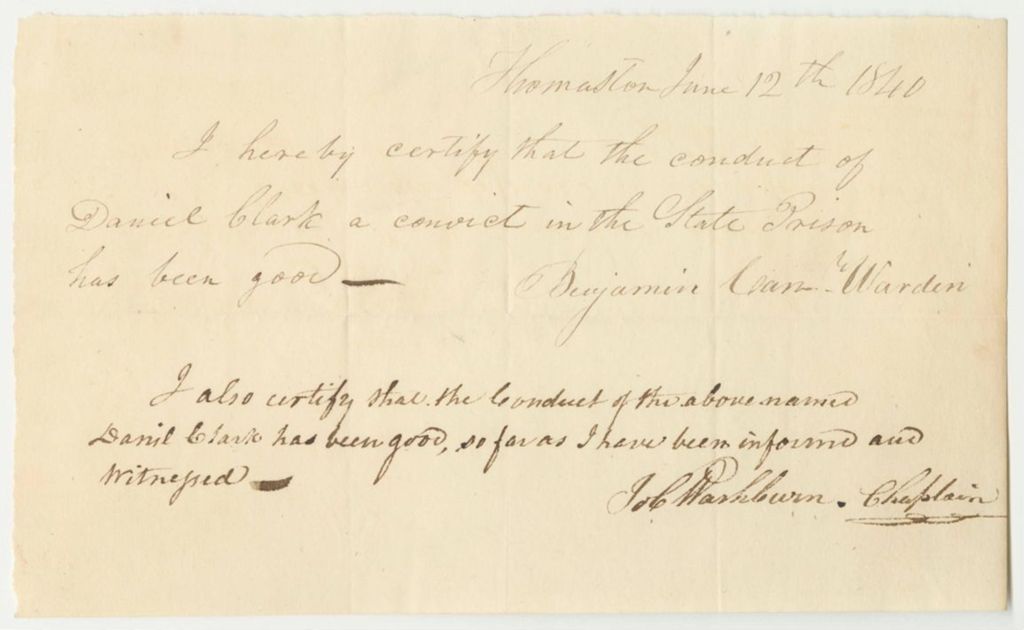 Thomaston June 12th 1840
I hereby certify that the conduct of
Daniel Clark a convict in the State Prison
has been good — Benjamin Carr Warden
I also certify that the Conduct of the above named
Danil Clark has been good, so far as I have been informd and
Witnessed —
Job Washburn. Chaplain